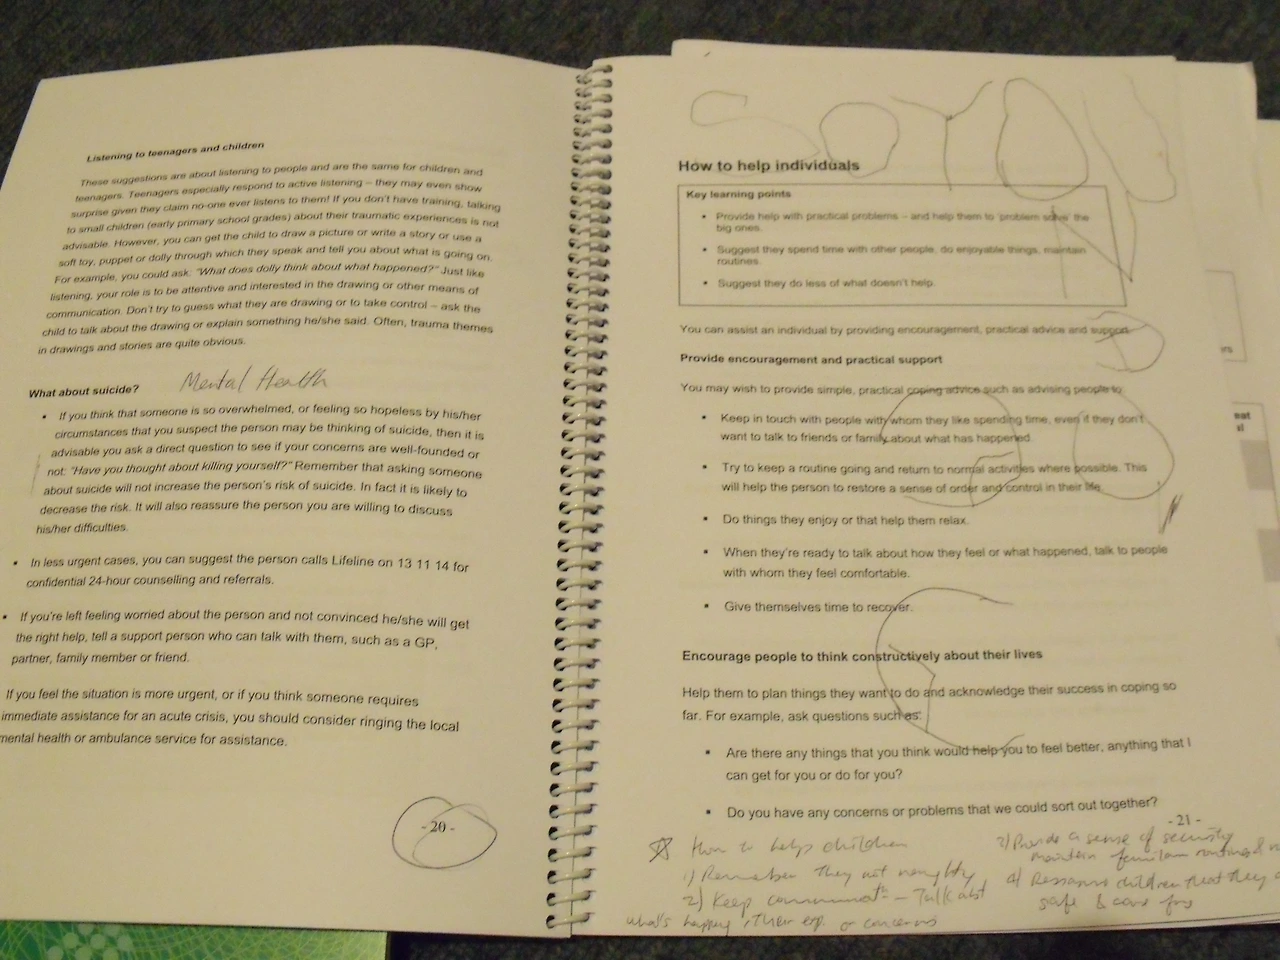 Listening to teenagers and children
These suggestions are about listening to people and are the same for children and
teenagers. Teenagers especially respond to active listening – they may even show
surprise given they claim no-one ever listens to them! If you don't have training, talking
to small children (early primary school grades) about their traumatic experiences is not
advisable. However, you can get the child to draw a picture or write a story or use a
soft toy, puppet or dolly through which they speak and tell you about what is going on.
For example, you could ask: "What does dolly think about what happened?" Just like
listening, your role is to be attentive and interested in the drawing or other means of
communication. Don't try to guess what they are drawing or to take control – ask the
child to talk about the drawing or explain something he/she said. Often, trauma themes
in drawings and stories are quite obvious.
What about suicide? Mental Health
• If you think that someone is so overwhelmed, or feeling so hopeless by his/her
circumstances that you suspect the person may be thinking of suicide, then it is
advisable you ask a direct question to see if your concerns are well-founded or
not: "Have you thought about killing yourself?" Remember that asking someone
about suicide will not increase the person's risk of suicide. In fact it is likely to
decrease the risk. It will also reassure the person you are willing to discuss
his/her difficulties.
• In less urgent cases, you can suggest the person calls Lifeline on 13 11 14 for
confidential 24-hour counselling and referrals.
• If you're left feeling worried about the person and not convinced he/she will get
the right help, tell a support person who can talk with them, such as a GP,
partner, family member or friend.
If you feel the situation is more urgent, or if you think someone requires
immediate assistance for an acute crisis, you should consider ringing the local
mental health or ambulance service for assistance.
- 20 -
How to help individuals
Key learning points
• Provide help with practical problems – and help them to 'problem solve' the
big ones.
• Suggest they spend time with other people, do enjoyable things, maintain
routines.
• Suggest they do less of what doesn't help.
You can assist an individual by providing encouragement, practical advice and support.
Provide encouragement and practical support
You may wish to provide simple, practical coping advice such as advising people to:
• Keep in touch with people with whom they like spending time, even if they don't
want to talk to friends or family about what has happened.
• Try to keep a routine going and return to normal activities where possible. This
will help the person to restore a sense of order and control in their life.
• Do things they enjoy or that help them relax.
• When they're ready to talk about how they feel or what happened, talk to people
with whom they feel comfortable.
• Give themselves time to recover.
Encourage people to think constructively about their lives
Help them to plan things they want to do and acknowledge their success in coping so
far. For example, ask questions such as:
• Are there any things that you think would help you to feel better, anything that I
can get for you or do for you?
• Do you have any concerns or problems that we could sort out together?
- 21 -
How to helps children
1) Remember they not naughty
2) Keep communicatn – Talk abt
what's happeng, their exp. or concerns
3) Provide a sense of security
maintain familiar routines &
4) Reassure children that they
safe & care for